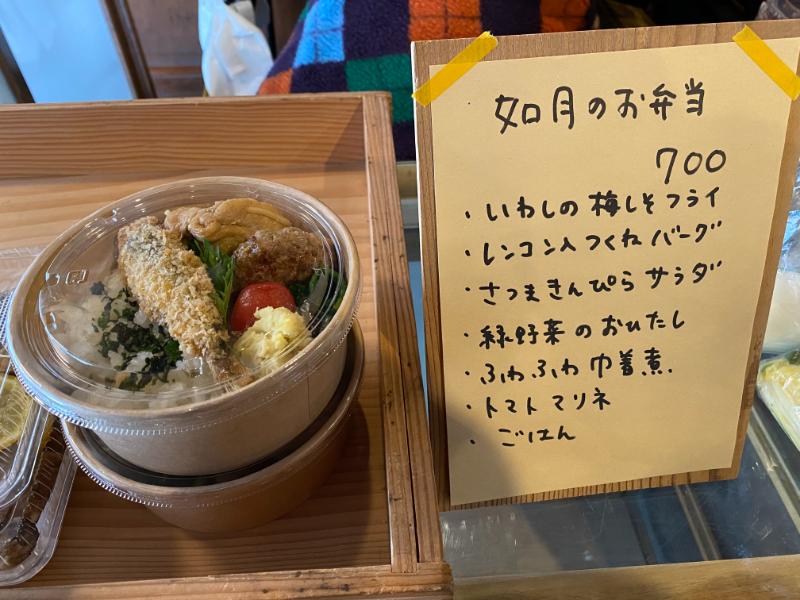 如月のお弁当
700
・いわしの梅しそフライ
・レンコン入つくねバーグ
・さつまきんぴらサラダ
・緑野菜のおひたし
・ふわふわ巾着煮.
・トマトマリネ
・ごはん